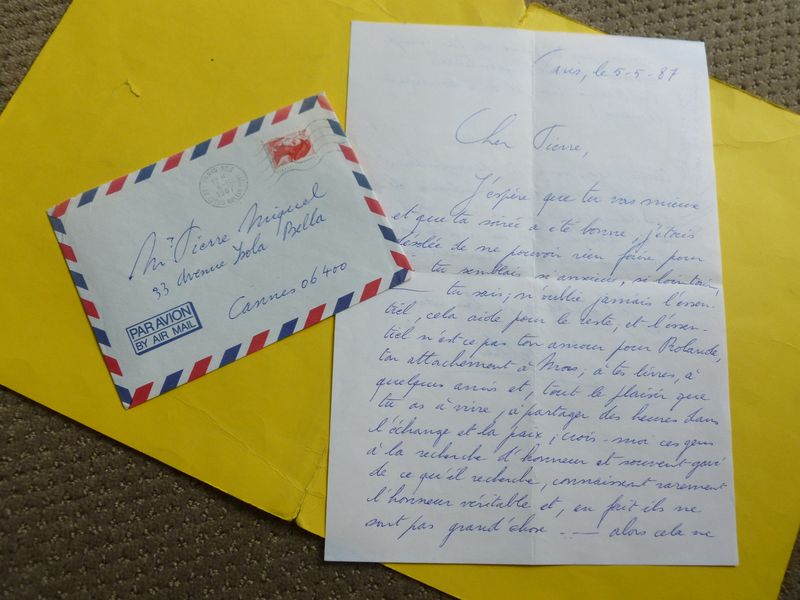 Mr Pierre Miguel
33 avenue Isola Bella
Cannes 06400
PAR AVION
BY AIR MAIL
PARIS
1987
Paris, le 5-5-87
Cher Pierre,
J'espère que tu vas mieux
et que ta soirée a été bonne, j'étais
désolée de ne pouvoir rien faire pour
tu semblais si anxieux, si lointain,
tu sais, n'oublie jamais l'essen-
tiel, cela aide pour le reste, et l'essen-
tiel n'est ce pas ton amour pour Rolande,
ton attachement à à tes livres, à
quelques amis et, tout le plaisir que
tu as à vivre, à partager des heures dans
l'échange et la paix, crois-moi ces gens
à la recherche d'honneur et souvent gavé
de ce qu'il recherche, connaissent rarement
l'honneur véritable et, en fait ils ne
sont pas grand'chose — alors cela ne